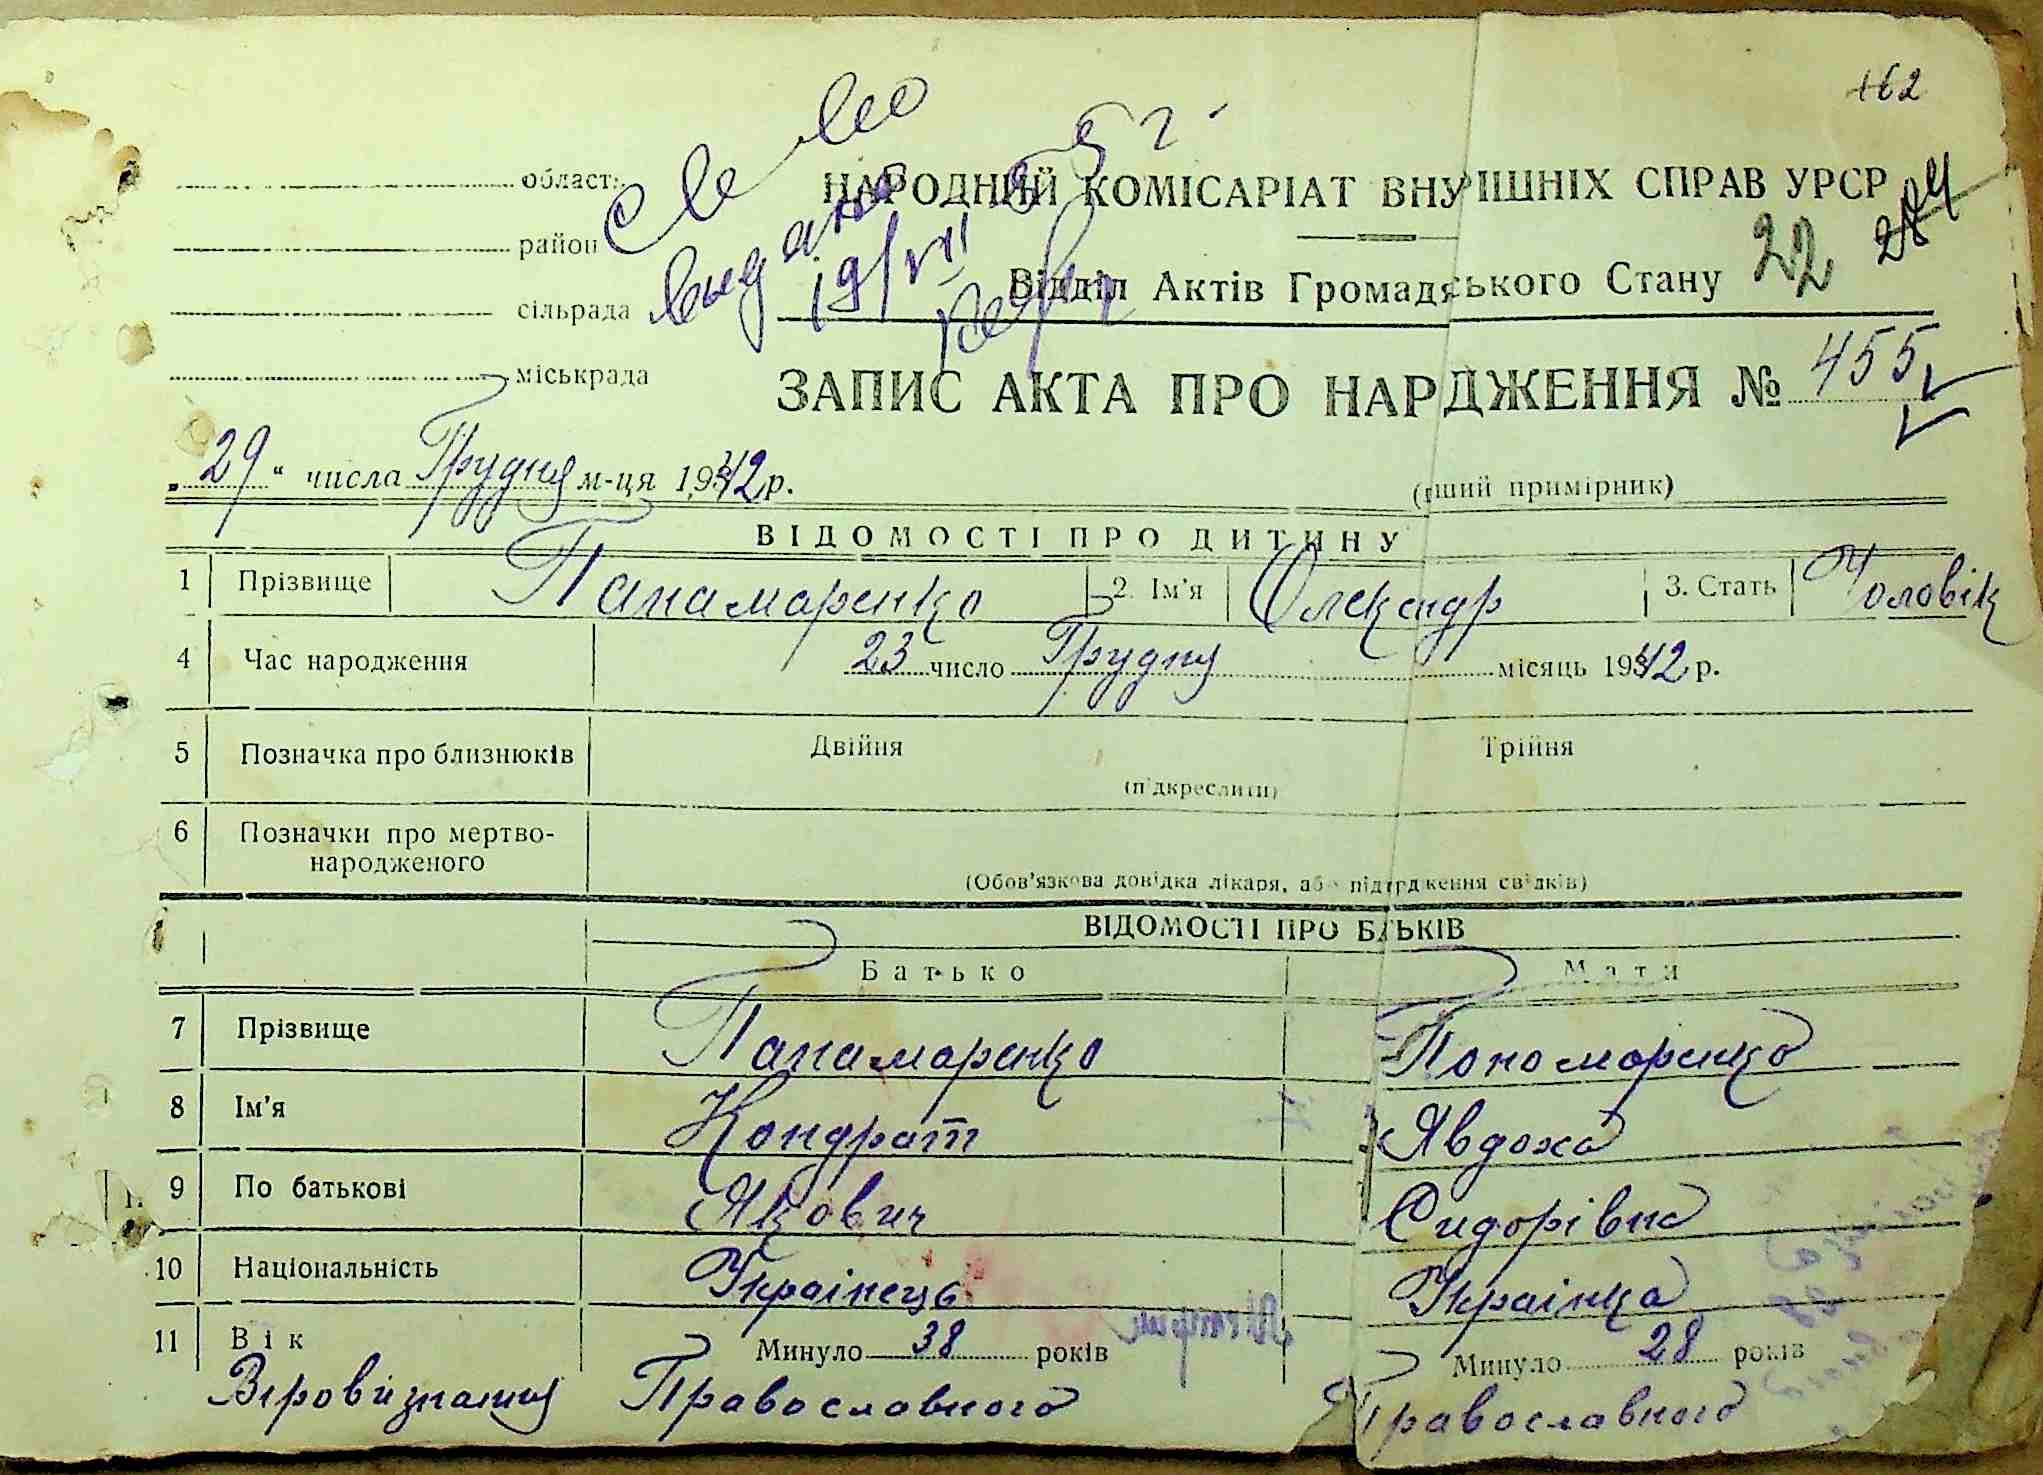 162
област
НАРОДНІЙ КОМІСАРІАТ ВНУРІШНІХ СПРАВ УРСР
район
22
Відділ Актів Громадського Стану
сільрада
выдано
19/VII 55 г.
міськрада
ЗАПИС АКТА ПРО НАРДЖЕННЯ № 455
"29" числа Грудня м-ця 1942 р.
(рший примірник)
ВІДОМОСТІ ПРО ДИТИНУ
1 Прізвище Панамаренко 2. Ім'я Олександр 3. Стать Чоловік
4 Час народження 23 число Грудня місяць 1942 р.
5 Позначка про близнюків Двійня Трійня
(підкреслити)
6 Позначки про мертво-
народженого
(Обов'язкова довідка лікаря, або підтрдження свідків)
ВІДОМОСТІ ПРО БТЬКІВ
Батько Мати
7 Прізвище Панамаренко Пономаренко
8 Ім'я Кондрат Явдоха
9 По батькові Якович Сидорівна
10 Національність Українець Українка
11 Вік Минуло 38 років Минуло 28 років
Віровизнання Православного Православного